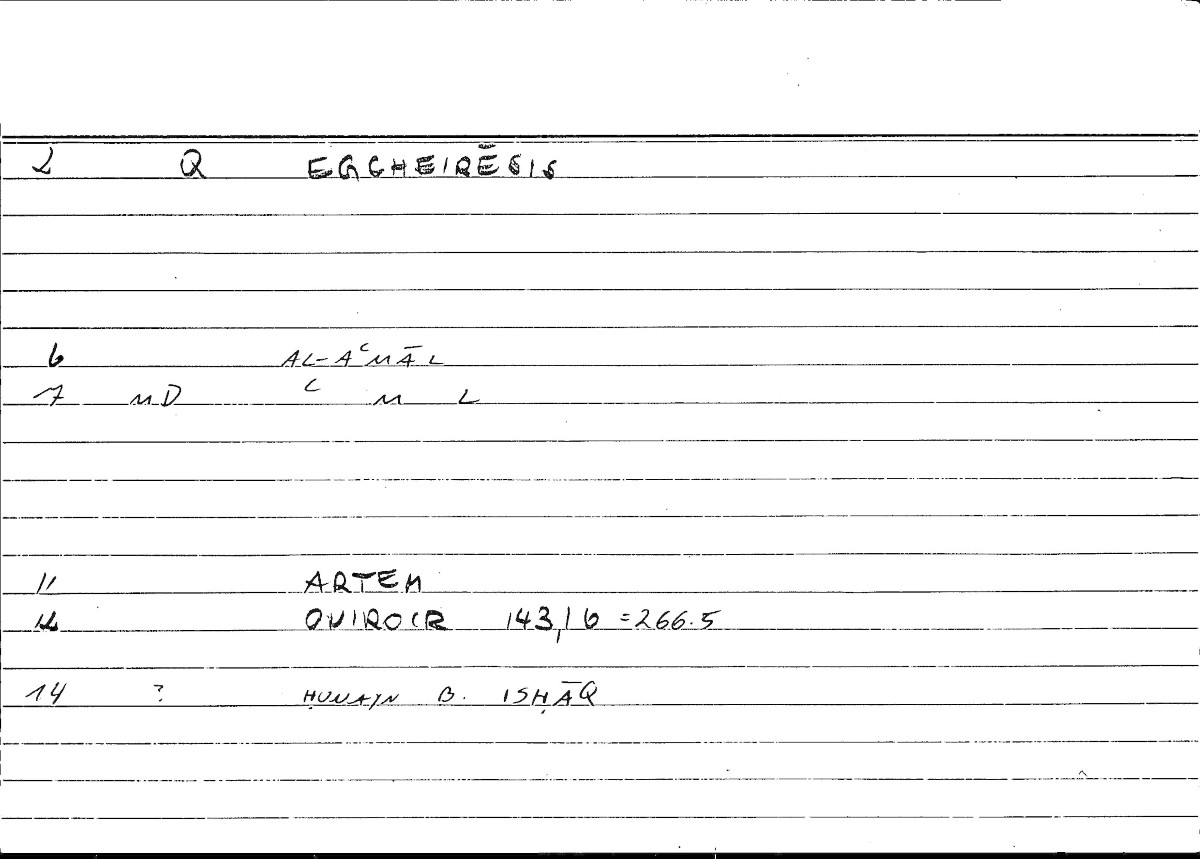 2 Q EGCHEIRĒSIS
6 AL-AʿMĀL
7 MD ʿ M L
11 ARTEM
12 OVIROCR 143,16 =266.5
14 ? ḤUNAJN B. ISḤĀQ